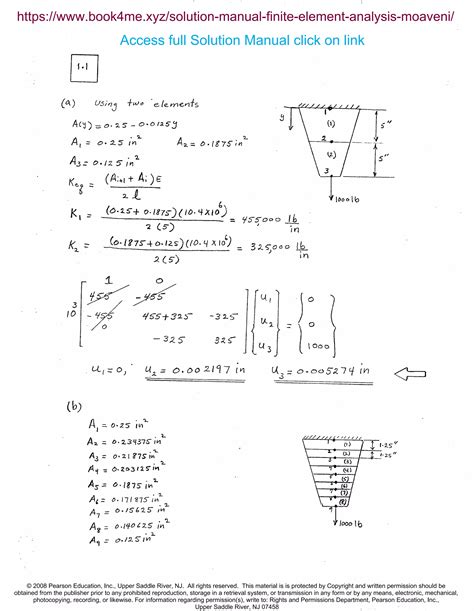 https://www.book4me.xyz/solution-manual-finite-element-analysis-moaveni/
Access full Solution Manual click on link
1.1
(a) Using two elements
A(y) = 0.25 - 0.0125y
A₁ = 0.25 in² A₂ = 0.1875 in²
A₃ = 0.125 in²
Keq = (Ai+1 + Ai)E / 2l
K₁ = (0.25 + 0.1875)(10.4x10⁶) / 2(5) = 455,000 lb/in
K₂ = (0.1875 + 0.125)(10.4x10⁶) / 2(5) = 325,000 lb/in
y
1
(1)
2
(2)
3
5"
5"
1000 lb
1 0
10³ [455 -455
-455 455+325 -325
0 -325 325] {u₁ u₂ u₃} = {0 0 1000}
u₁ = 0, u₂ = 0.002197 in u₃ = 0.005274 in
(b)
A₁ = 0.25 in²
A₂ = 0.234375 in²
A₃ = 0.21875 in²
A₄ = 0.203125 in²
A₅ = 0.1875 in²
A₆ = 0.171875 in²
A₇ = 0.15625 in²
A₈ = 0.140625 in²
A₉ = 0.125 in²
(1)
(2)
(3)
(4)
(5)
(6)
(7)
(8)
1.25"
1.25"
1000 lb
© 2008 Pearson Education, Inc., Upper Saddle River, NJ. All rights reserved. This material is is protected by Copyright and written permission should be
obtained from the publisher prior to any prohibited reproduction, storage in a retrieval system, or transmission in any form or by any means, electronic, mechanical,
photocopying, recording, or likewise. For information regarding permission(s), write to: Rights and Permissions Department, Pearson Education, Inc.,
Upper Saddle River, NJ 07458